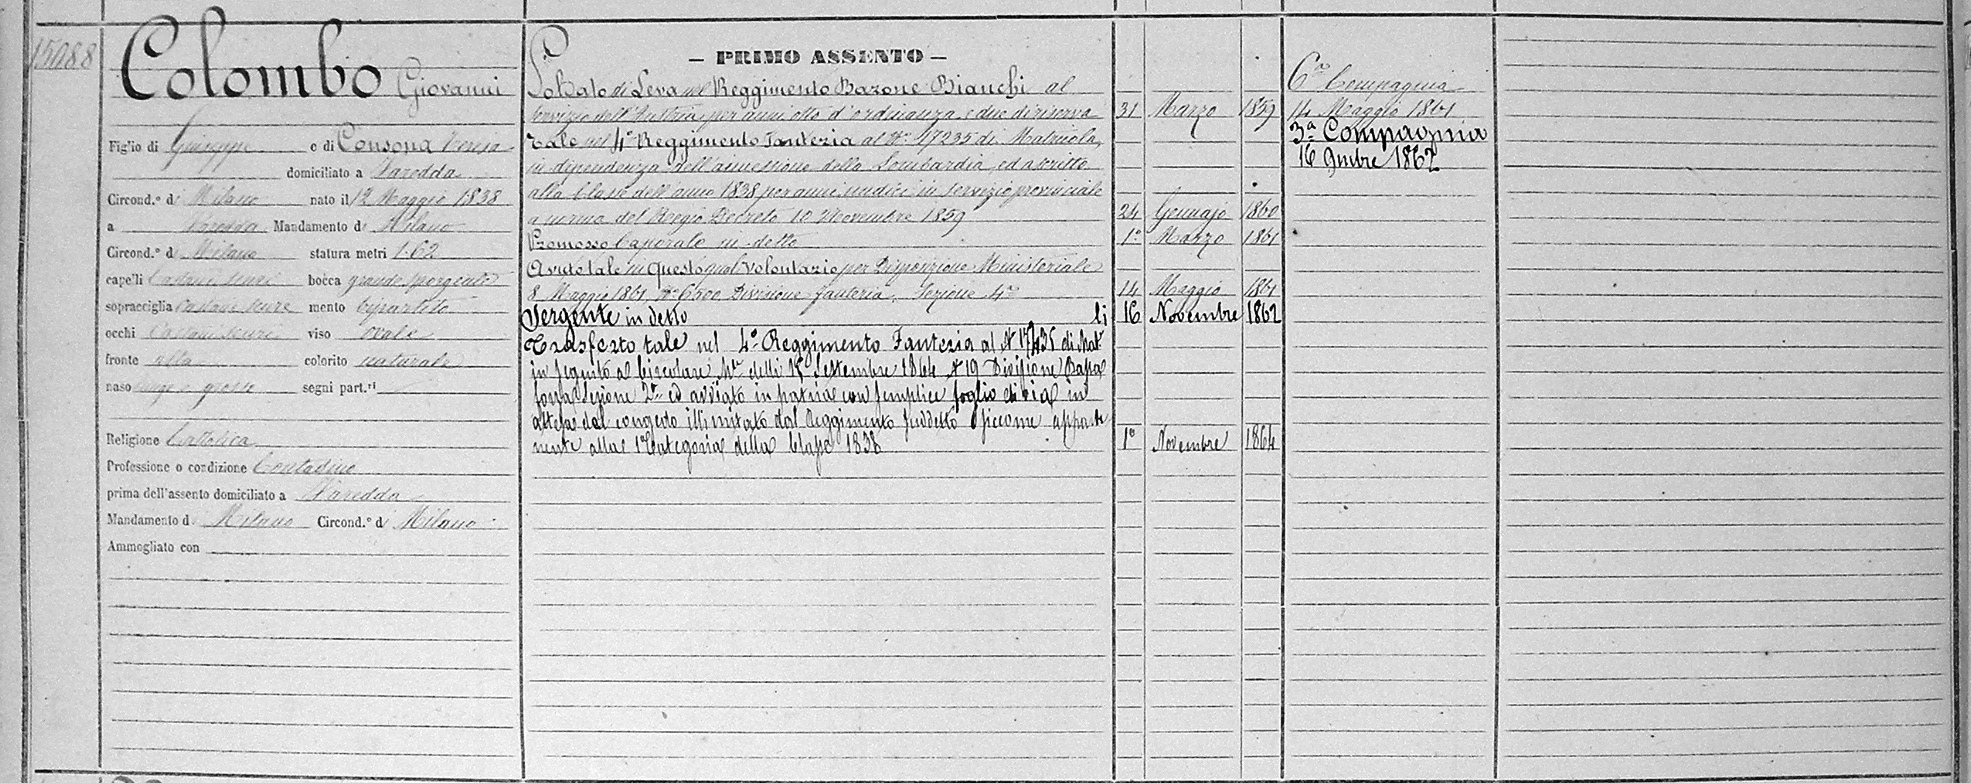 15088
Colombo Giovanni
Figlio di Giuseppe e di Consona Teresa
domiciliato a Varedda
Circond.º di Milano nato il 12 Maggio 1838
a Varedda Mandamento di Milano
Circond.º di Milano statura metri 1.62
capelli Castani scuri bocca grande sporgente
sopracciglia castane scure mento bipartito
occhi Castani scuri viso ovale
fronte alta colorito naturale
naso lungo e grosso segni part.ri
Religione Cattolica
Professione o condizione Contadino
prima dell'assento domiciliato a Varedda
Mandamento di Milano Circond.º di Milano
Ammogliato con
— PRIMO ASSENTO —
Soldato di Leva nel Reggimento Barone Bianchi al
servizio dell'Austria per anni otto d'ordinanza e due di riserva 31 Marzo 1859
Tale nel 4º Reggimento Fanteria al Nº 17235 di Matricola,
in dipendenza dell'annessione della Lombardia, ed ascritto
alla Classe dell'anno 1838 per anni undici in servizio provinciale
a norma del Regio Decreto 10 Novembre 1859 24 Gennajo 1860
Promosso Caporale in detto 1º Marzo 1861
Avuto tale in questo qual volontario per Disposizione Ministeriale
8 Maggio 1861 Nº 6500 Divisione fanteria, Sezione 4ª 14 Maggio 1861
Sergente in detto li 16 Novembre 1862
Trasferto tale nel 4º Reggimento Fanteria al N 17435 di Matª
in seguito al Circolare Mle delli 15 Settembre 1864 N 19 Divisione Bassa
forza Sezione 2ª ed avviato in patria con semplice foglio di via in
attesa del congedo illimitato dal Reggimento suddetto siccome apparte
nente alla 1ª Categoria della Classe 1838 1º Novembre 1864
6ª Compagnia
14 Maggio 1861
3ª Compagnia
16 9mbre 1862